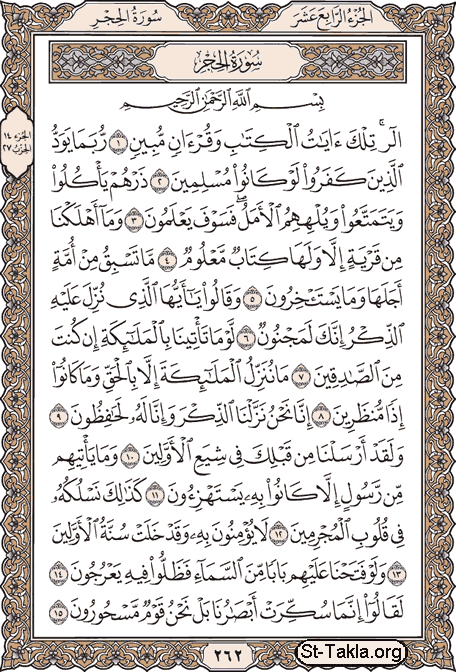 الجزء الرابع عشر
سورة الحجر
سورة الحجر
الجزء ١٤
الحزب ٢٧
بِسْمِ اللَّهِ الرَّحْمَٰنِ الرَّحِيمِ
الٓر ۚ تِلْكَ ءَايَٰتُ ٱلْكِتَٰبِ وَقُرْءَانٍ مُّبِينٍ ١ رُّبَمَا يَوَدُّ
ٱلَّذِينَ كَفَرُوا۟ لَوْ كَانُوا۟ مُسْلِمِينَ ٢ ذَرْهُمْ يَأْكُلُوا۟
وَيَتَمَتَّعُوا۟ وَيُلْهِهِمُ ٱلْأَمَلُ ۖ فَسَوْفَ يَعْلَمُونَ ٣ وَمَآ أَهْلَكْنَا
مِن قَرْيَةٍ إِلَّا وَلَهَا كِتَابٌ مَّعْلُومٌ ٤ مَّا تَسْبِقُ مِنْ أُمَّةٍ
أَجَلَهَا وَمَا يَسْتَـْٔخِرُونَ ٥ وَقَالُوا۟ يَٰٓأَيُّهَا ٱلَّذِى نُزِّلَ عَلَيْهِ
ٱلذِّكْرُ إِنَّكَ لَمَجْنُونٌ ٦ لَّوْ مَا تَأْتِينَا بِٱلْمَلَٰٓئِكَةِ إِن كُنتَ
مِنَ ٱلصَّٰدِقِينَ ٧ مَا نُنَزِّلُ ٱلْمَلَٰٓئِكَةَ إِلَّا بِٱلْحَقِّ وَمَا كَانُوٓا۟
إِذًا مُّنظَرِينَ ٨ إِنَّا نَحْنُ نَزَّلْنَا ٱلذِّكْرَ وَإِنَّا لَهُۥ لَحَٰفِظُونَ ٩
وَلَقَدْ أَرْسَلْنَا مِن قَبْلِكَ فِى شِيَعِ ٱلْأَوَّلِينَ ١٠ وَمَا يَأْتِيهِم
مِّن رَّسُولٍ إِلَّا كَانُوا۟ بِهِۦ يَسْتَهْزِءُونَ ١١ كَذَٰلِكَ نَسْلُكُهُۥ
فِى قُلُوبِ ٱلْمُجْرِمِينَ ١٢ لَا يُؤْمِنُونَ بِهِۦ ۖ وَقَدْ خَلَتْ سُنَّةُ ٱلْأَوَّلِينَ
١٣ وَلَوْ فَتَحْنَا عَلَيْهِم بَابًا مِّنَ ٱلسَّمَآءِ فَظَلُّوا۟ فِيهِ يَعْرُجُونَ ١٤
لَقَالُوٓا۟ إِنَّمَا سُكِّرَتْ أَبْصَٰرُنَا بَلْ نَحْنُ قَوْمٌ مَّسْحُورُونَ ١٥
٢٦٢
St-Takla.org